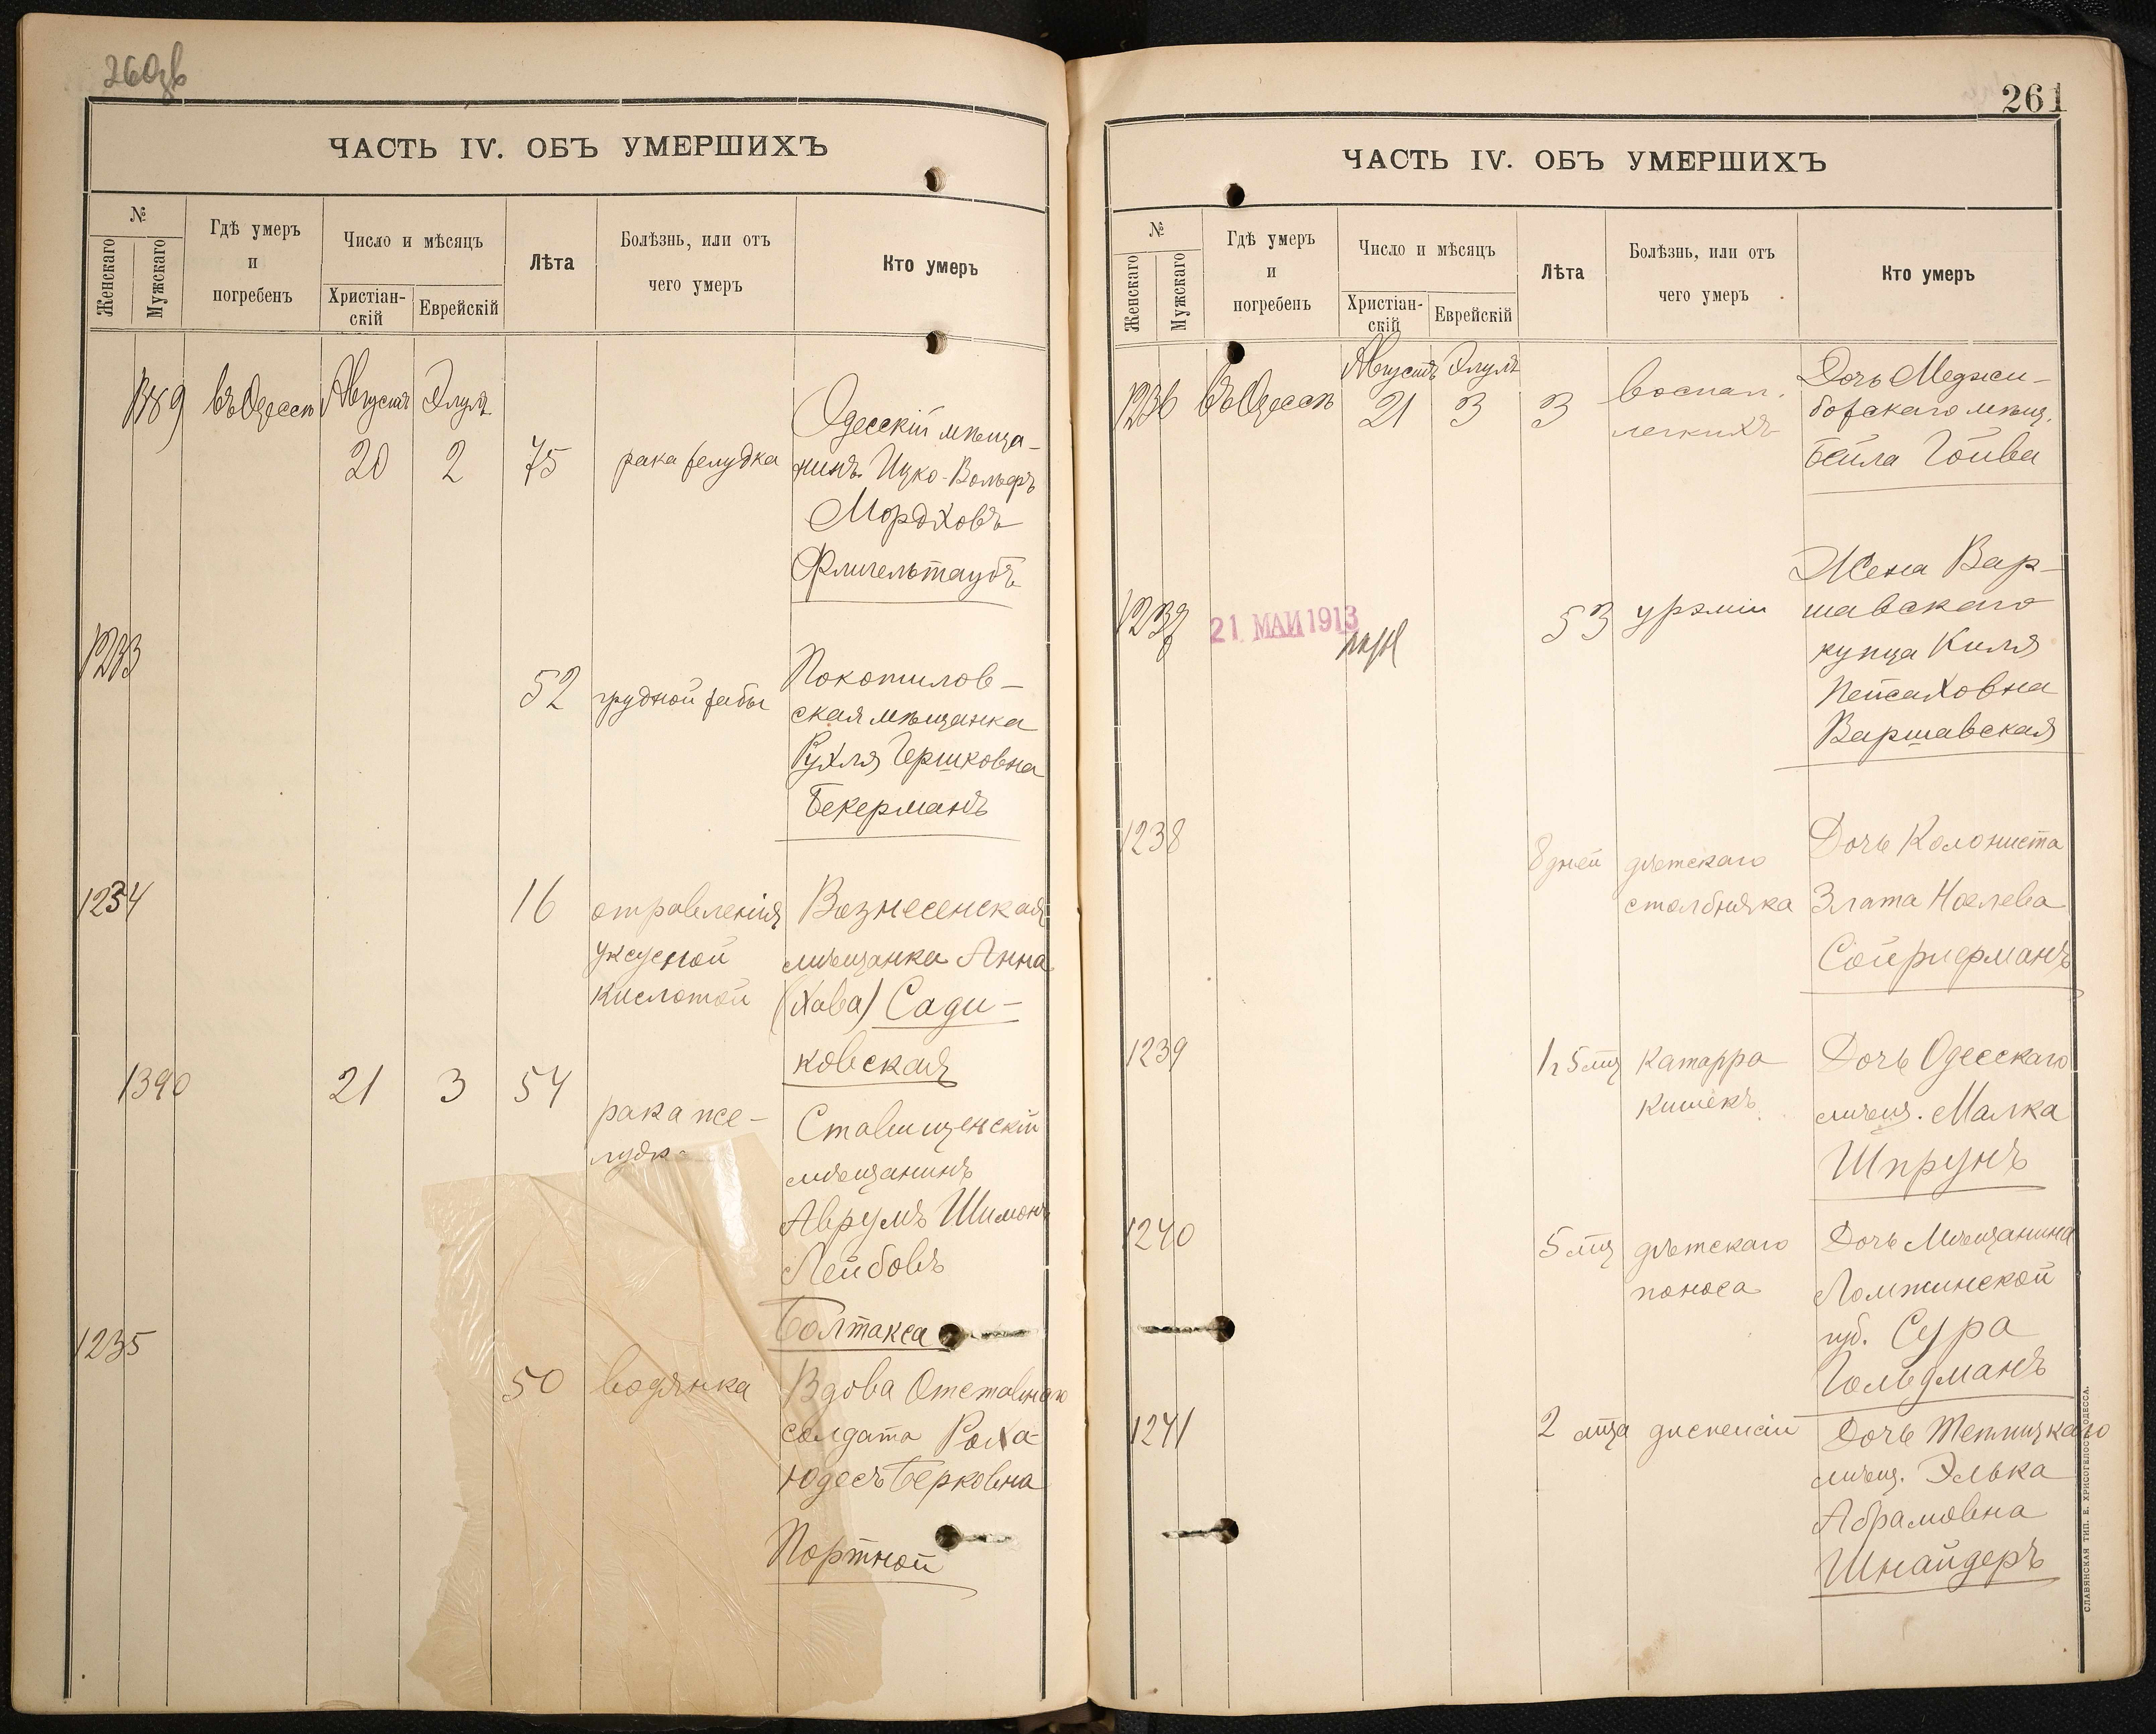 260об
ЧАСТЬ IV. ОБЪ УМЕРШИХЪ
№
Женскаго
Мужскаго
Гдѣ умеръ
и
погребенъ
Число и мѣсяцъ
Христіан-
скій
Еврейскій
Лѣта
Болѣзнь, или отъ
чего умеръ
Кто умеръ
1389 въ Одессѣ Августъ Элулъ
20 2 75 рака желудка
Одесскій мѣща-
нинъ Ицко-Вольфъ
Мордховъ
Флигельтаубъ
1233
52 грудной жабы
Покотилов-
ская мѣщанка
Рухля Гершковна
Бекерманъ
1234
16 отравленія
уксусной
кислотой
Вознесенская
мѣщанка Анна
(Хава) Сади-
ковская
1390 21 3 54
рака же-
лудка
Ставищенскій
мѣщанинъ
Аврумъ Шимонъ
Лейбовъ
Болтакса
1235
50 водянка
Вдова Отставнаго
солдата Роха-
Юдесъ Берковна
Портной
261
ЧАСТЬ IV. ОБЪ УМЕРШИХЪ
№
Женскаго
Мужскаго
Гдѣ умеръ
и
погребенъ
Число и мѣсяцъ
Христіан-
скій
Еврейскій
Лѣта
Болѣзнь, или отъ
чего умеръ
Кто умеръ
1236 въ Одессѣ Августъ Элулъ
21 3 3
воспал.
легкихъ
Дочь Меджи-
божскаго мѣщ.
Бейла Гойва
1237
21 МАЙ 1913
53 уреміи
Жена Вар-
шавскаго
купца Киля
Пейсаховна
Варшавская
1238
8 дней дѣтскаго
столбняка
Дочь Колониста
Злата Ноелева
Сойриерманъ
1239
1 г 5 мц Катарра
кишекъ
Дочь Одесскаго
мѣщ. Малка
Шпрунъ
1240
5 мц дѣтскаго
поноса
Дочь Мѣщанина
Ломжинской
губ. Сура
Гольдманъ
1241
2 мца диспепсіи
Дочь Теплицкаго
мѣщ. Элька
Абрамовна
Шнайдеръ
СЛАВЯНСКАЯ ТИП. Е. ХРИСОГЕЛОСЪ, ОДЕССА.